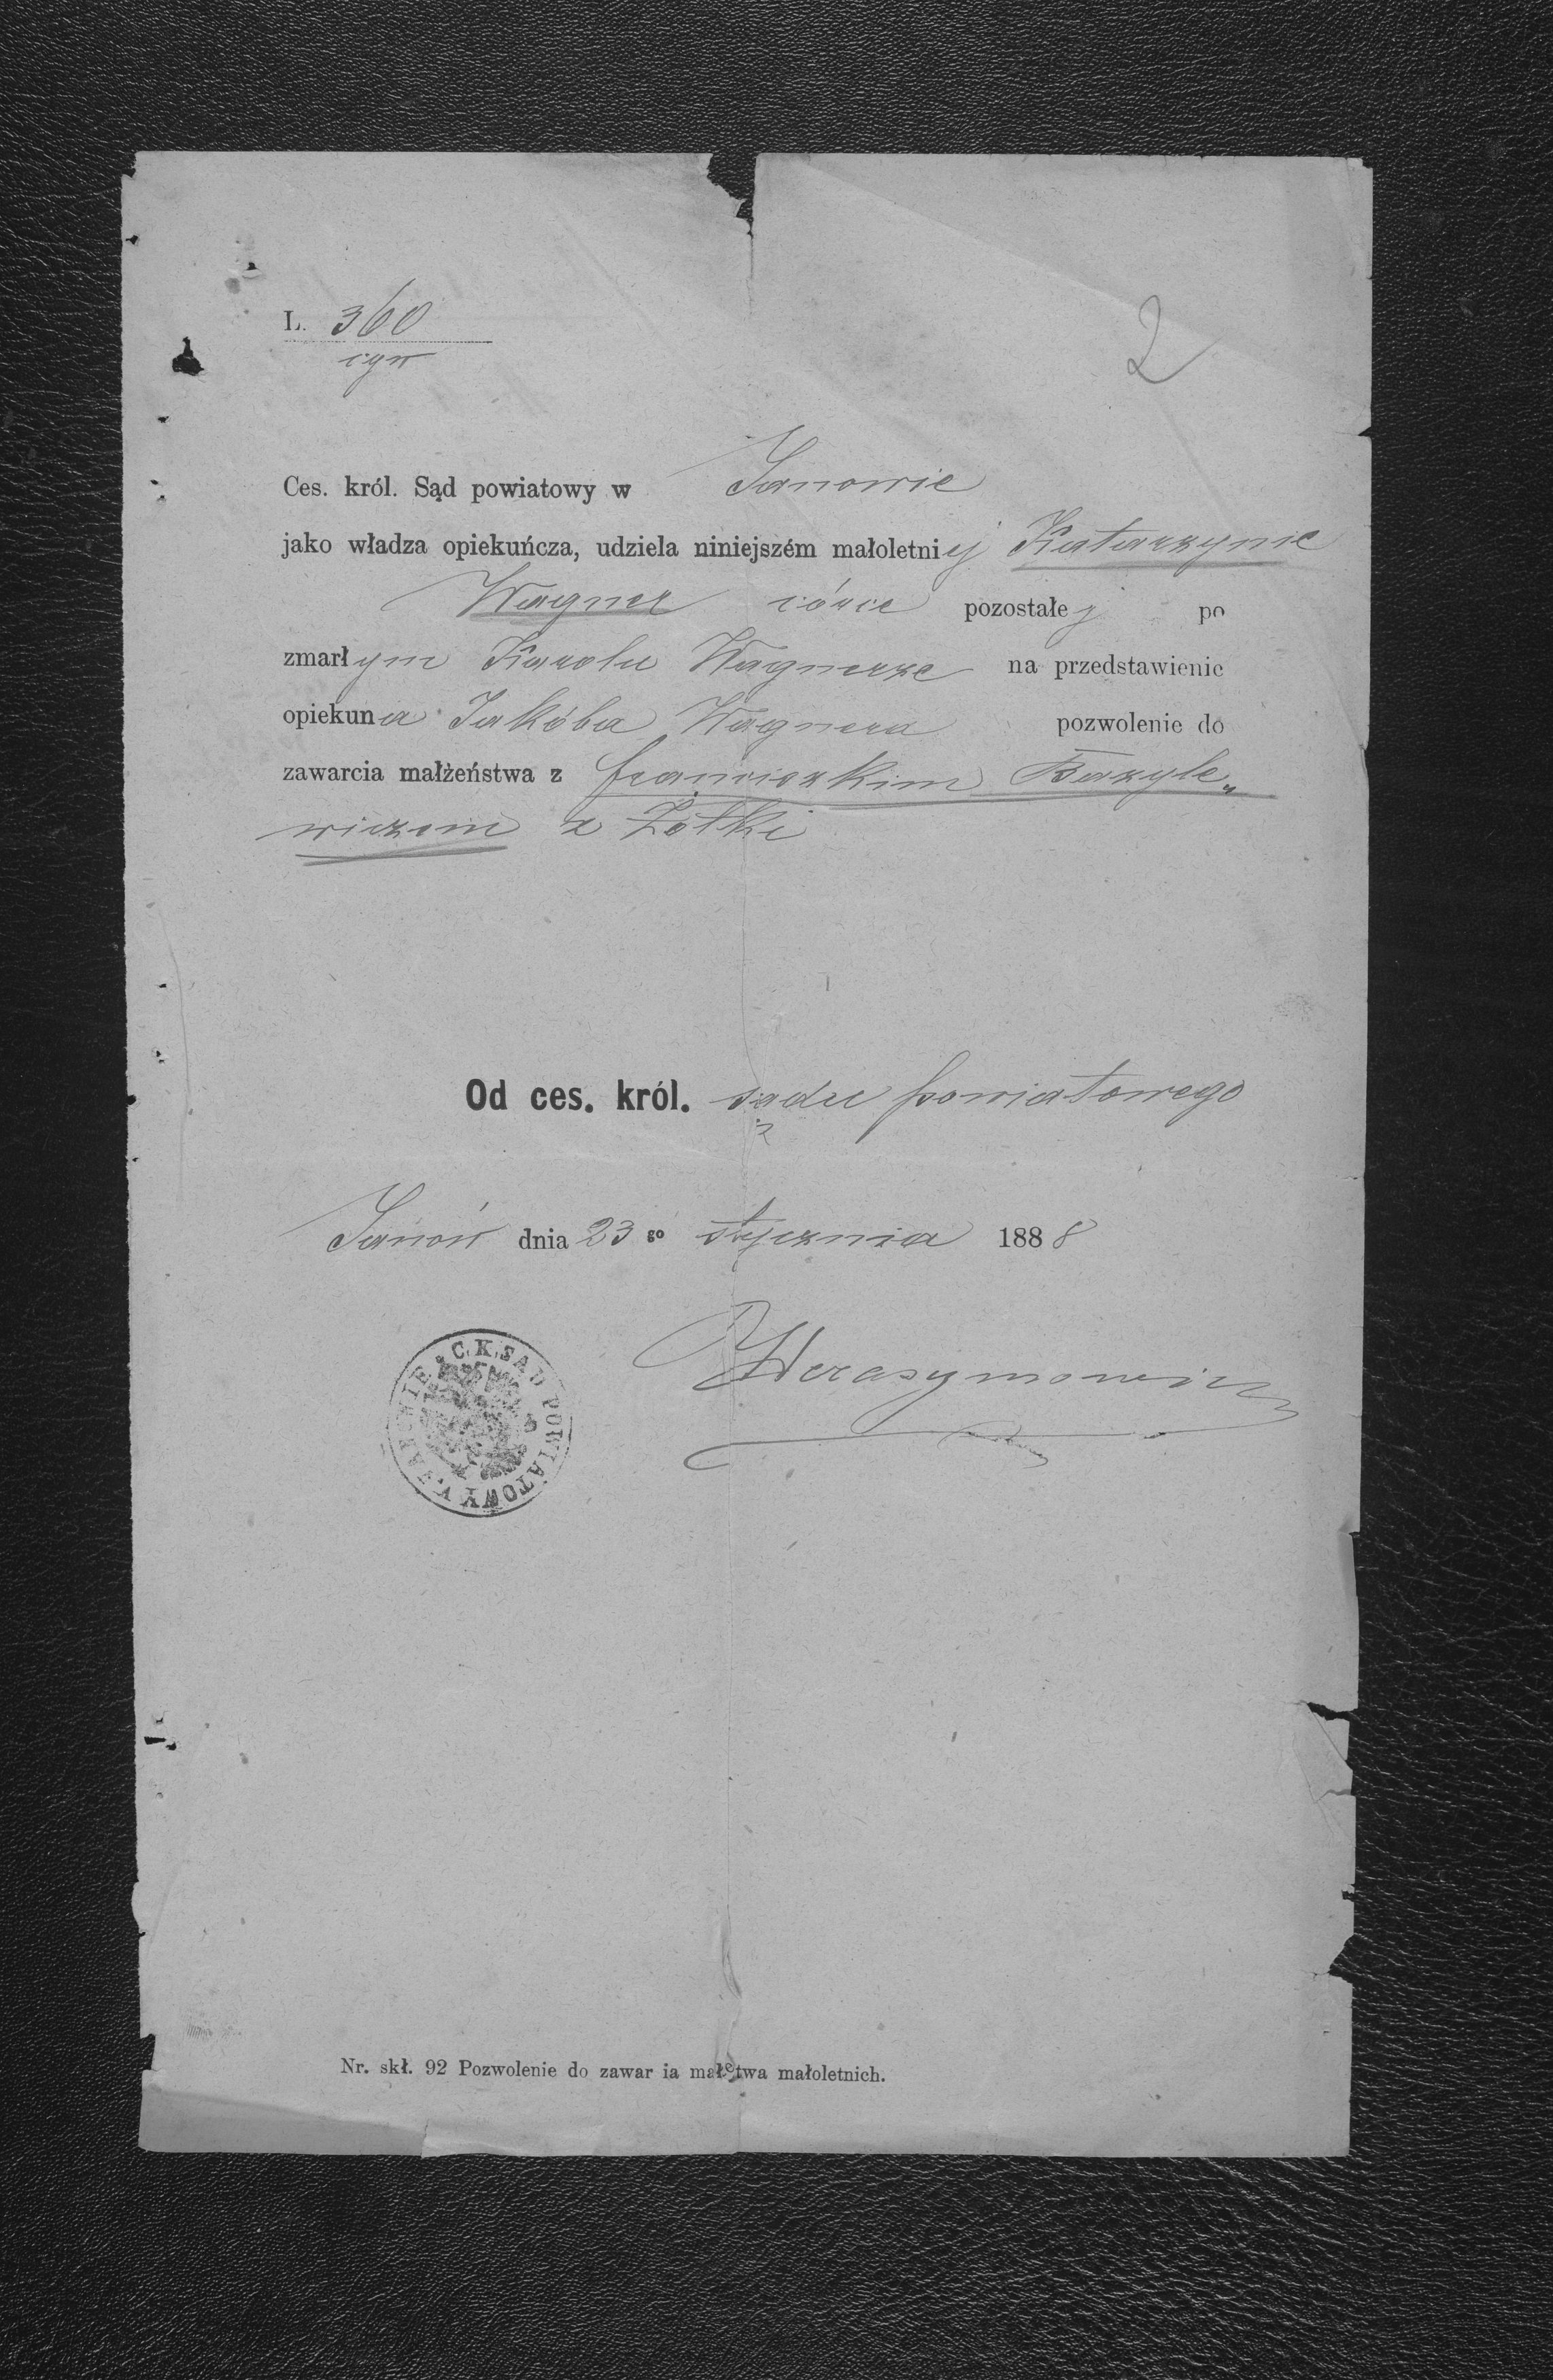 L. 360
cyw
2
Ces. król. Sąd powiatowy w Janowie
jako władza opiekuńcza, udziela niniejszém małoletniej Katarzynie
Wagner córce pozostałej po
zmarłym Karolu Wagnerze na przedstawienie
opiekuna Jakóba Wagnera pozwolenie do
zawarcia małżeństwa z Franciszkim Bazyle„
wiczem z Żółki
Od ces. król. sądu powiatowego
Janów dnia 23 go stycznia 1888
C. K. SĄD POWIATOWY W JANOWIE
Nr. skł. 92 Pozwolenie do zawar ia małętwa małoletnich.